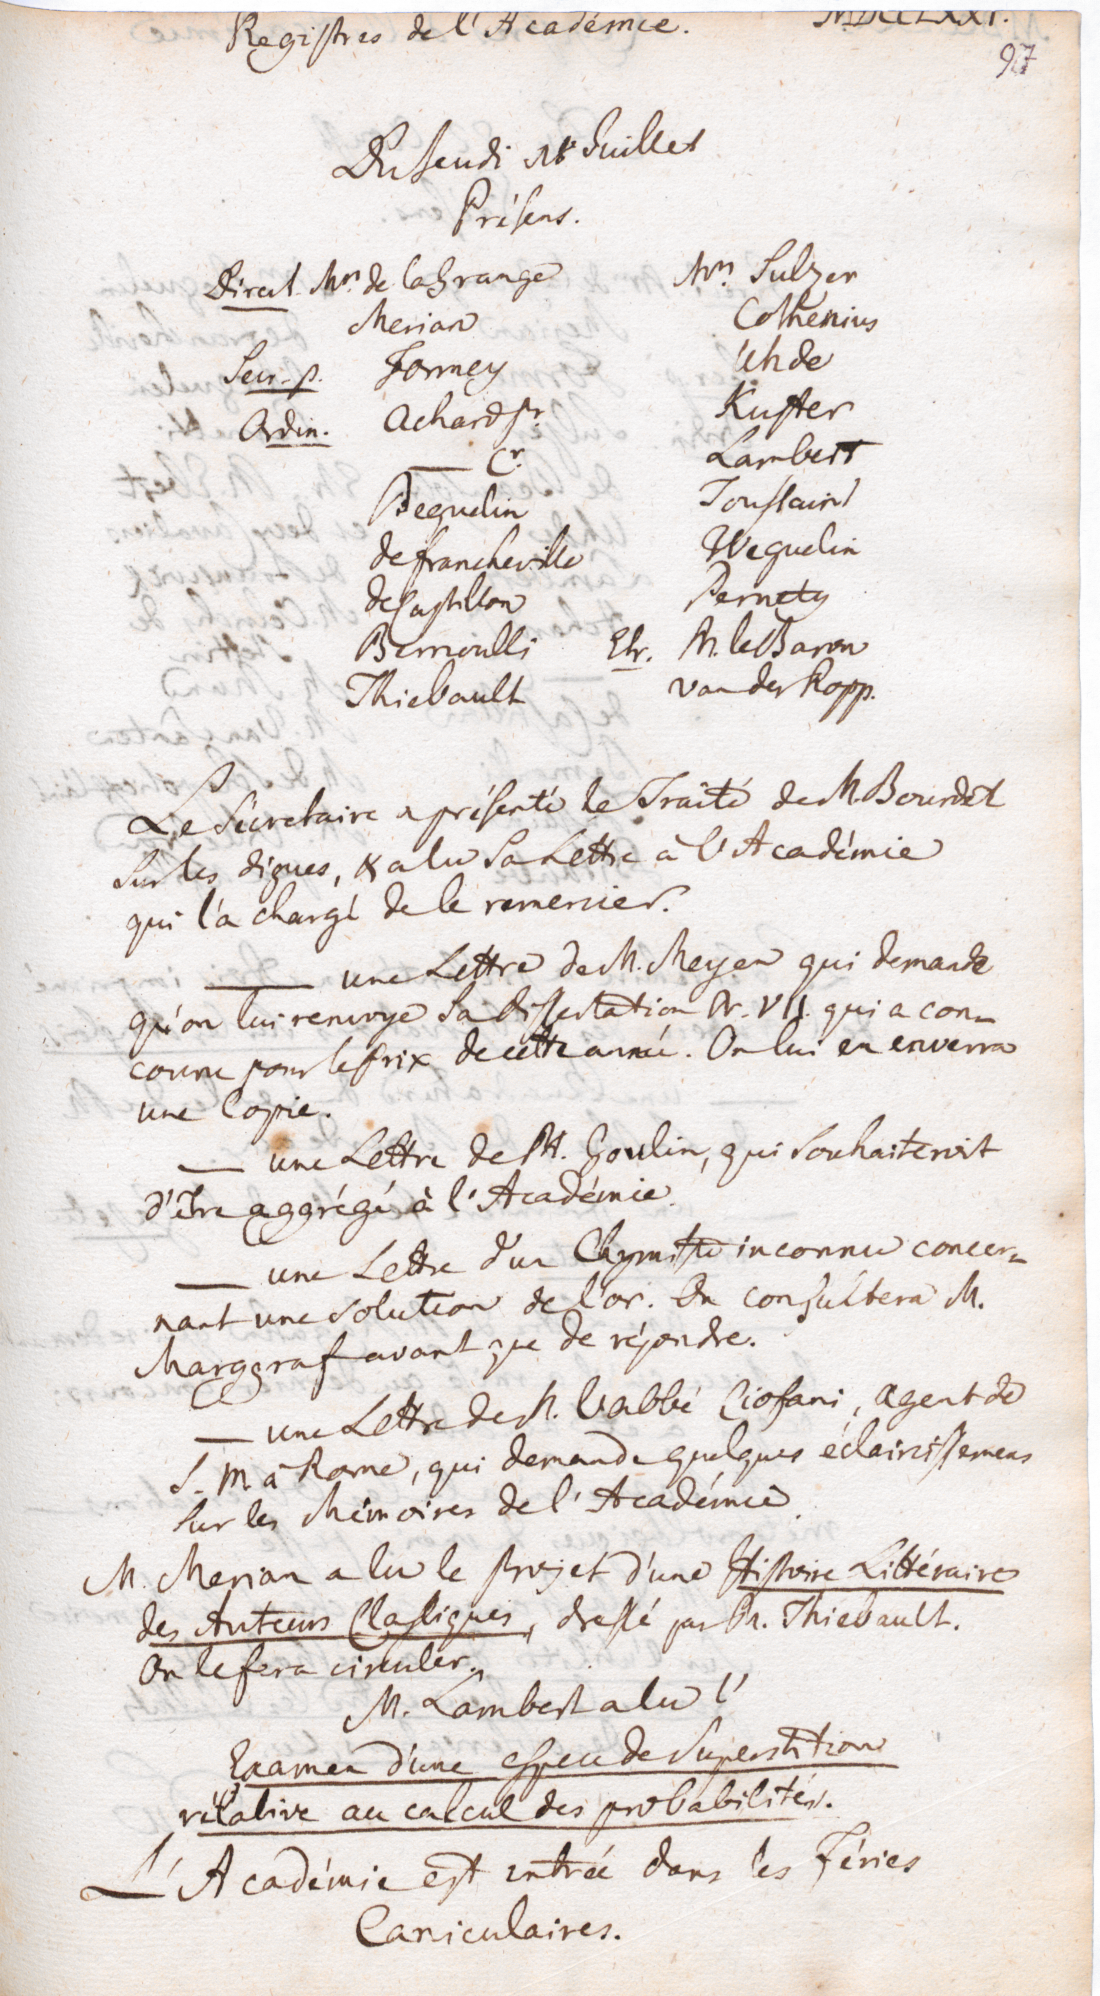 Registres de l'Académie. MDCCLXXI.
97
Du Jeudi Juillet
Présens.
Direct. Mrs. de la Grange
Merian
Secr. p. Formey
Ordin. Achard pr.
— Cr.
Beguelin
de Francheville
de Castillon
Bernoulli
Thiebault
Mrs. Sulzer
Cothenius
Uhde
Kuster
Lambert
Toussaint
Weguelin
Pernety
Etr. M. le Baron
van der Kopp.
Le Sécretaire a présenté le Traité de M. Bourdet
sur les digues, & a lu sa Lettre à l'Académie
qui l'a chargé de le remercier.
— une Lettre de M. Meyen qui demande
qu'on lui renvoye sa Dissertation N. VII. qui a con-
couru pour le prix de cette année. On lui en enverra
une Copie.
— une Lettre de M. Goulin, qui souhaiteroit
d'être aggrégé à l'Académie.
— une Lettre d'un Chymiste inconnu concer-
nant une solution de l'or. On consultera M.
Marggraf avant que de répondre.
— une Lettre de M. l'abbé Ciofani, agent de
S. M. à Rome, qui demande quelques éclaircissemens
sur les Mémoires de l'Académie.
M. Merian a lu le projet d'une Histoire Littéraire
des Auteurs Classiques, dressé par M. Thiebault.
On le fera circuler.
M. Lambert a lu l'
Examen d'une espece de Superstition
rélative au calcul des probabilités.
L'Académie est entrée dans les Féries
Caniculaires.